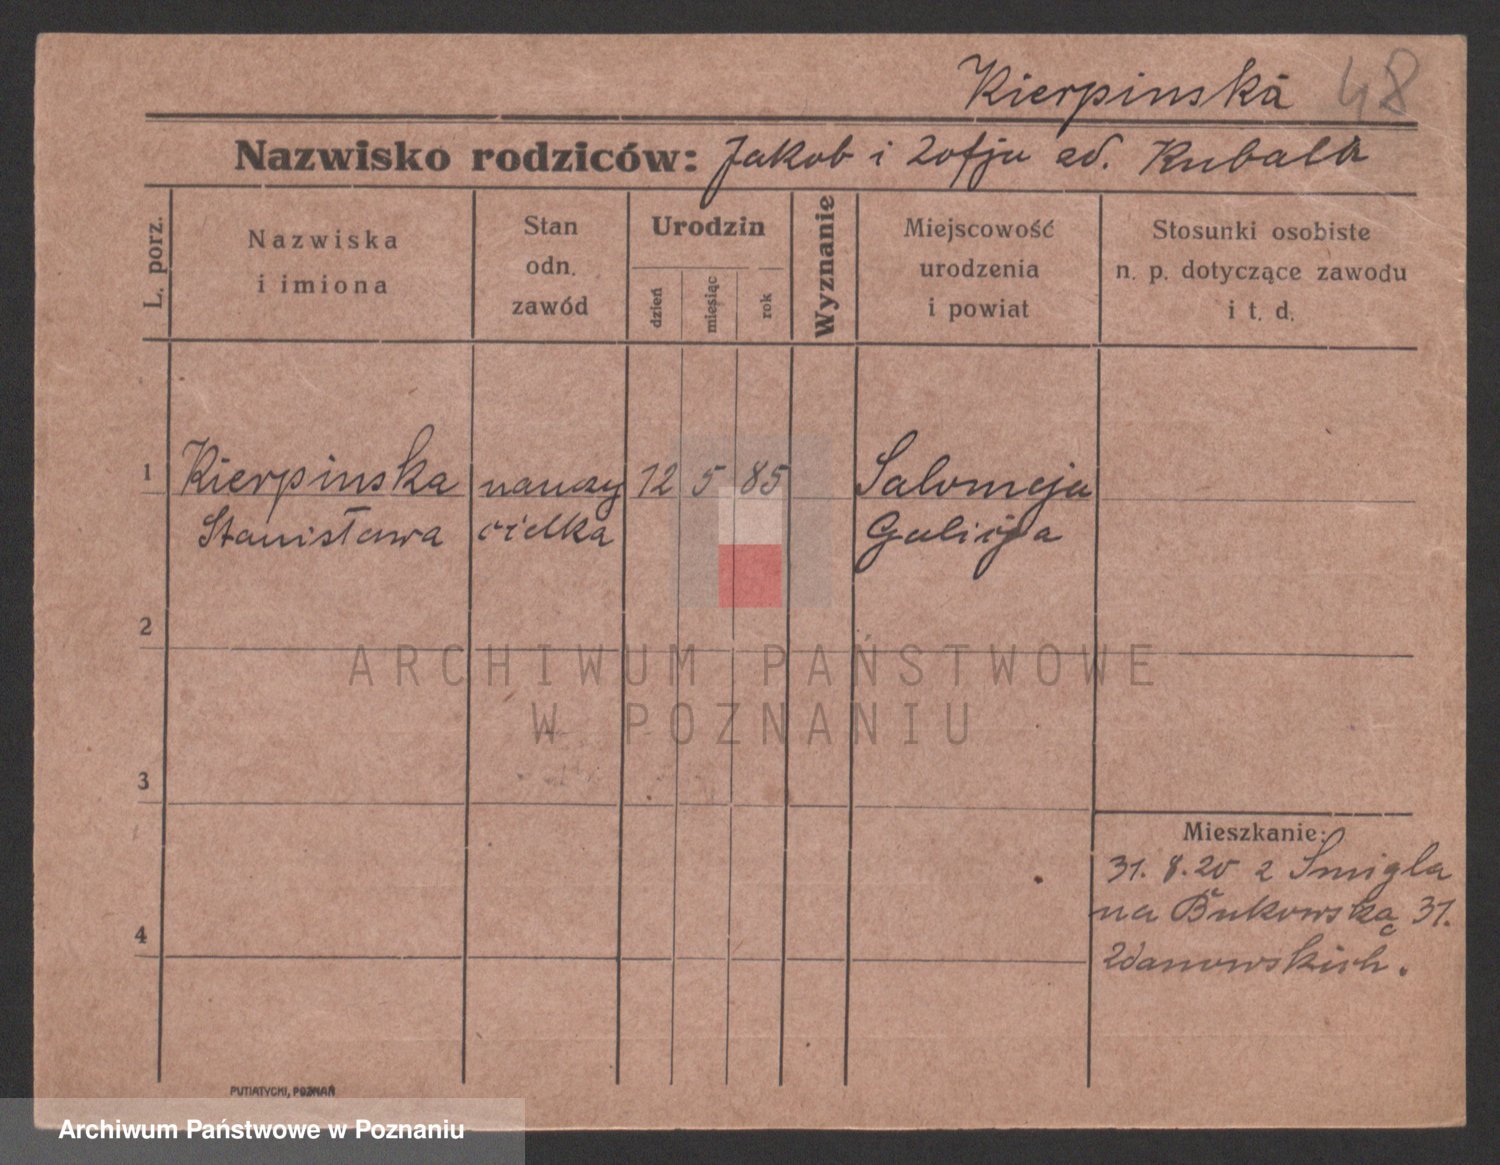 Kierpinska 48
Nazwisko rodziców: Jakob i Zofja ad. Kubala
L. porz.
Nazwiska
i imiona
Stan
odn.
zawód
Urodzin
dzień
miesiąc
rok
Wyznanie
Miejscowość
urodzenia
i powiat
Stosunki osobiste
n. p. dotyczące zawodu
i t. d.
1 Kierpinska nauczy 12 5 85 Salomeja
Stanisława cielka Galicja
2
ARCHIWUM PAŃSTWOWE
W POZNANIU
3
Mieszkanie:
31. 8. 20 z Smigla
na Bukowską 31.
4
Zdanowskich.
PUTIATYCKI, POZNAŃ
Archiwum Państwowe w Poznaniu